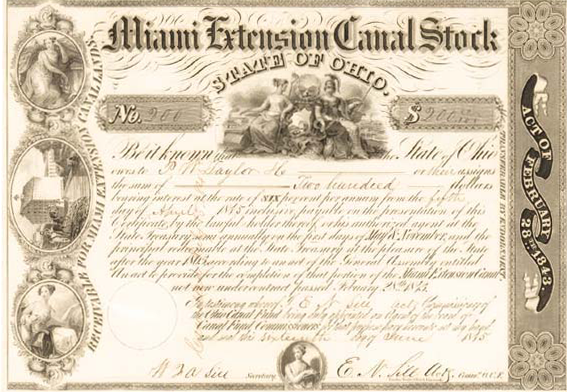 Miami Extension Canal Stock
STATE OF OHIO.
No. 200
$ 200
Be it known that the State of Ohio
owes to or their assigns
the sum of Two hundred dollars
bearing interest at the rate of SIX per cent per annum from the fifth
day of April 1845 inclusive, payable on the presentation of this
Certificate, by the lawful holder thereof, or his authorized agent at the
State first days of May & November, and the
principal at the State Treasury of the State
after the year according to an act of the General Assembly entitled
An act to provide for the completion of that portion of the Miami Extension Canal
not now under contract passed February 28th 1843.
In testimony whereof I E. N. Sill acting Commissioner of
the Ohio Canal Fund, being duly of the Board of
Canal Fund Commissioners for that purpose hereunto set my hand
and seal the sixteenth day of June 1845
Secretary
E. N. Sill Actg. Comr. O.C.F.
RECEIVABLE FOR MIAMI EXTENSION CANAL LANDS
TRANSFERABLE BY ENDORSEMENT
ACT OF FEBRUARY 28TH 1843